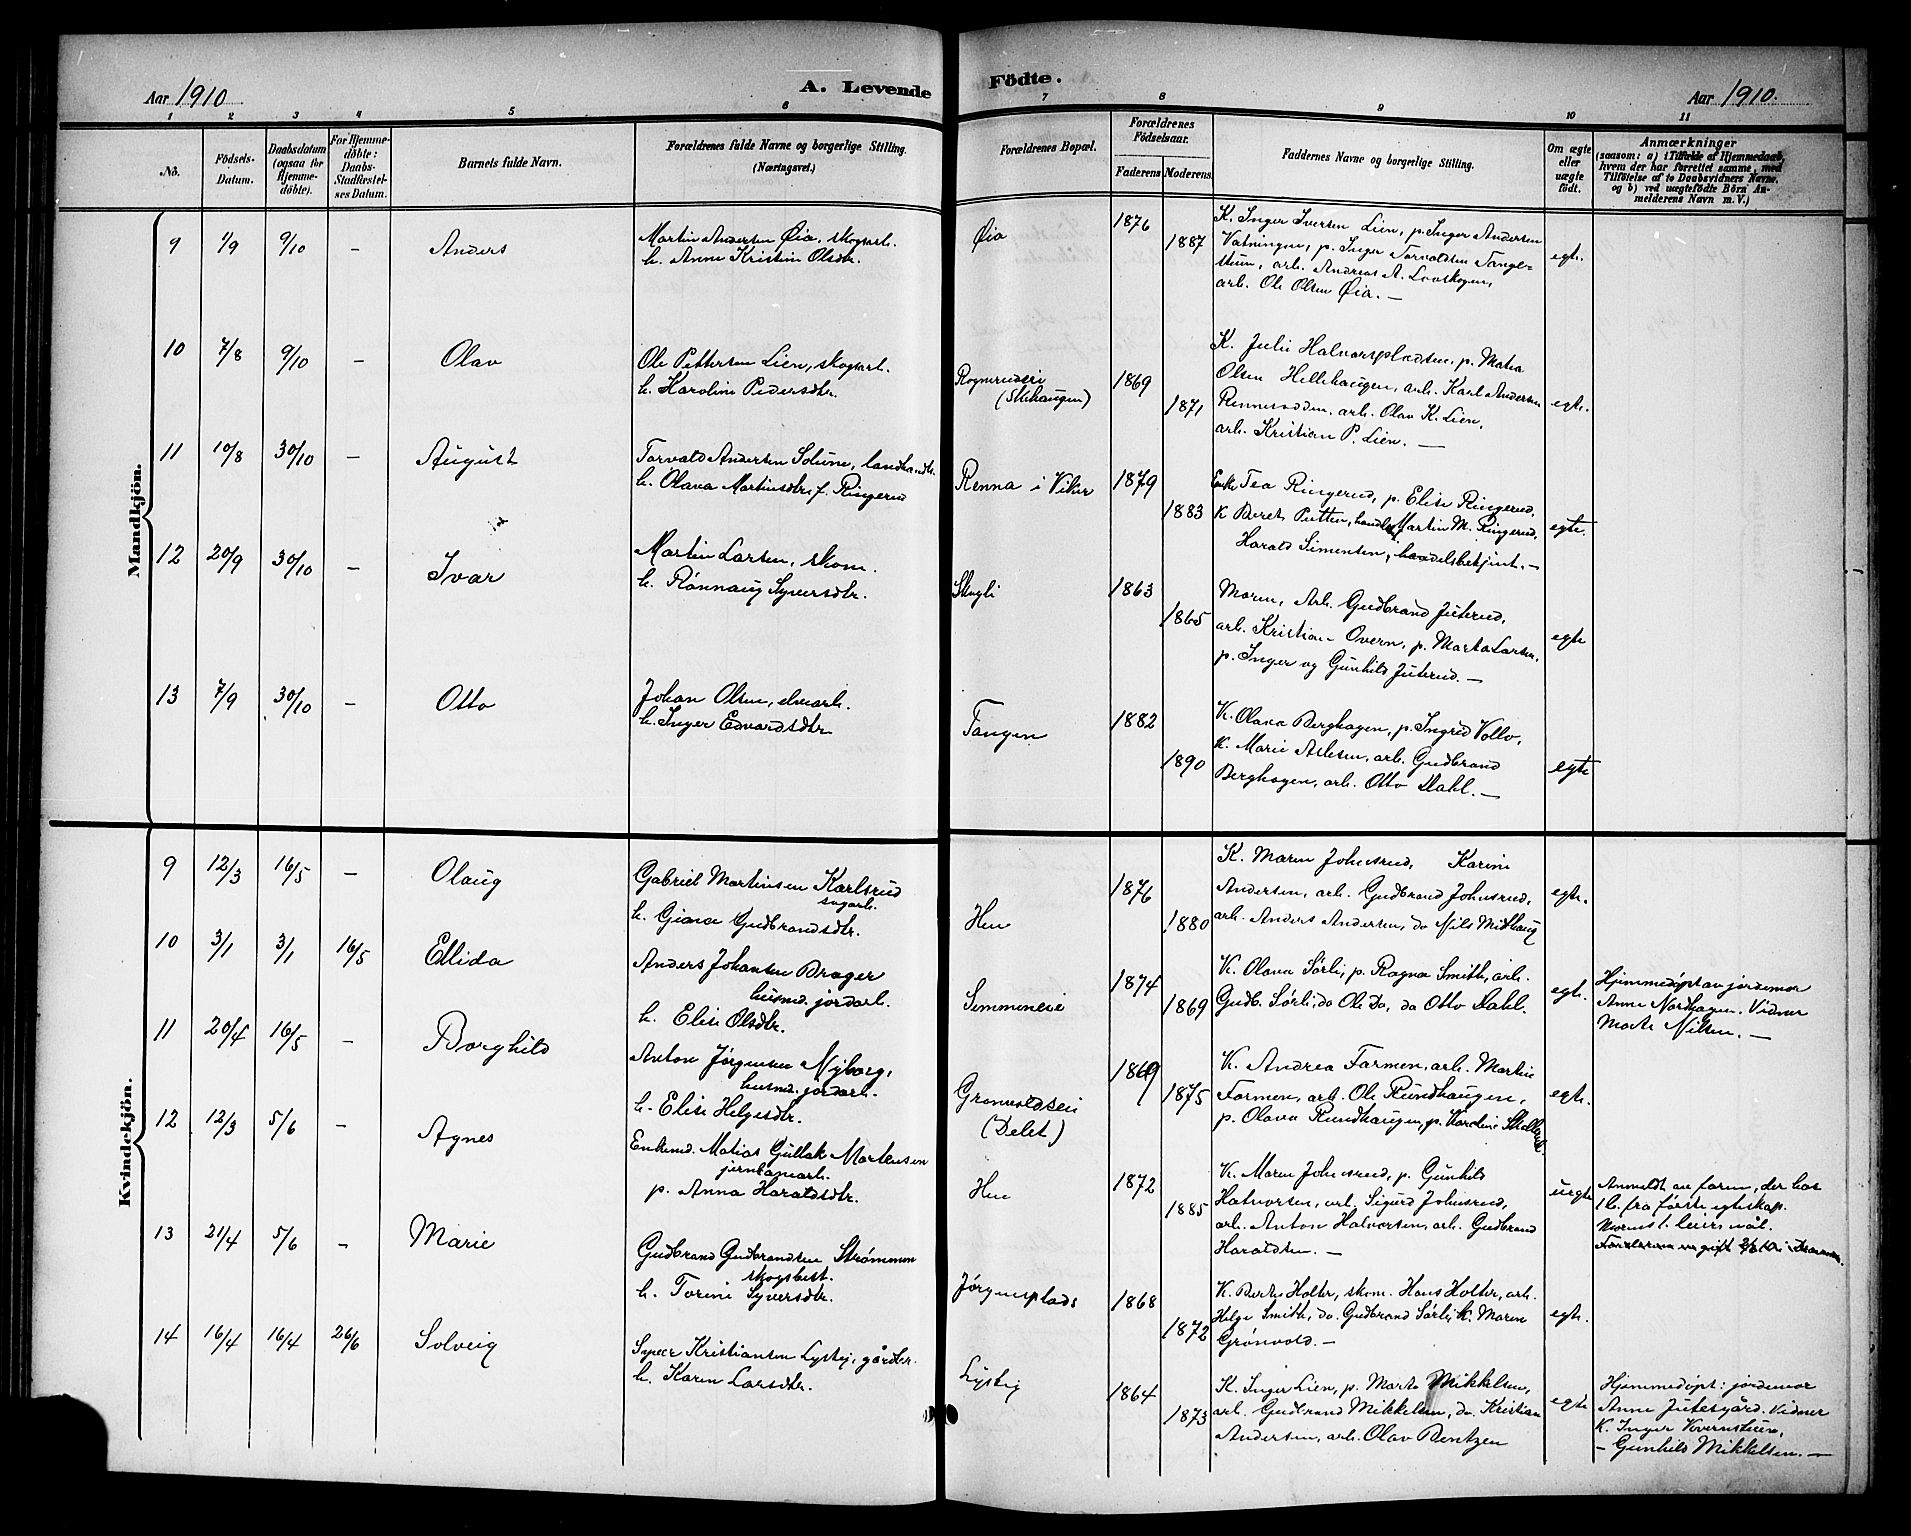 Aar 1910
A. Levende
1 2 3 4 5 6
No.
Födsels-
Datum.
Daabsdatum
(ogsaa for
Hjemme-
döbte).
For Hjemme-
döbte:
Daabs-
Stadfæstel-
ses Datum.
Barnets fulde Navn.
Forældrenes fulde Navne og borgerlige Stilling.
(Næringsvei.)
Mandkjön.
9 1/9 9/10 - Anders
Martin Andersen Øia, skogarb.
h. Anne Kristine Olsdtr.
10 7/8 9/10 - Olav
Ole Pettersen Lien, skogsarb.
h. Karoline Pedersdtr.
11 10/8 30/10 - August
Torvald Andersen Solune, landhandl.
h. Olava Martinsdtr. f. Ringerud
12 20/9 30/10 - Ivar
Martin Larsen, skom.
h. Rønnaug Syversdtr.
13 7/9 30/10 - Otto
Johan Olsen, elvearb.
h. Inger Edvardsdtr.
Kvindekjön.
9 12/3 16/5 - Olaug
Gabriel Martinsen Karlsrud
sagarb.
h. Giana Gudbrandsdtr.
10 3/1 3/1 16/5 Ellida
Anders Johansen Brager
husmd. jordarb.
h. Elise Olsdtr.
11 20/4 16/5 - Borghild
Anton Jørgensen Nyborg,
husmd. jordarb.
h. Elise Helgesdtr.
12 12/3 5/6 - Agnes
Enkemd. Matias Gullak Martinsen
jernbanarb.
p. Anna Haraldsdtr.
13 21/4 5/6 - Marie
Gudbrand Gudbrandsen Strømmen
skogsbest.
h. Torine Syversdtr.
14 16/4 16/4 26/6 Solveig
Syver Kristiansen Lystej, gårdbr.
h. Karen Larsdtr.
Födte.
Aar 1910.
7 8 9 10 11
Forældrenes Bopæl.
Forældrenes
Födselsaar.
Faderens Moderens.
Faddernes Navne og borgerlige Stilling.
Om ægte
eller
uægte
födt.
Anmærkninger
(saasom: a) i Tilfælde af Hjemmedaab,
hvem der har forrettet samme, med
Tilföielse af to Daabsvidners Navne.
og b) ved uægtefödte Börn An-
melderens Navn m. V.)
Øia 1876 1887
K. Inger Iversen Lien, p. Inger Andersen
Vatningen, p. Inger Torvaldsen Tangl-
steun, arb. Andreas A. Lovskogen,
arb. Ole Olsen Øia. -
egte.
Rognerudsei
(Slehaugen)
1869 1871
K. Julie Halvorspladsen, p. Matea
Olsen Hellehaugen, arb. Karl Andersen
Rennesodden, arb. Olav K. Lien,
arb. Kristian P. Lien. -
egte.
Renna i Viker 1879 1883
Enke Tea Ringerud, p. Elise Ringerud,
K Beret Putten, handler Martin M. Ringerud,
Harald Simensen, handelsbetjent. -
egte.
Skogli 1863 1865
Moren, Arb. Gudbrand Juterud,
arb. Kristian Overn, p. Marta Larsen,
p. Inger og Gunhild Juterud. -
egte
Tangen 1882 1890
K. Olava Berghagen, p. Ingrid Vollo,
K. Marie Aslesen, arb. Gudbrand
Berghagen, arb. Otto Dahl. -
egte
Hen 1876 1880
K. Maren Johnsrud, Karine
Andersen, arb. Gudbrand Johnsrud,
arb. Anders Andersen, do Nils Midthaug
egte.
Semmeneie 1874 1869
K. Olava Sørli, p. Ragna Smith, arb.
Gudb. Sørli, do Ole Do, do Otto Dahl.
egte.
Hjemmedøpt av jordemor
Anne Nordhagen. Vidner
Marte Nilsen. -
Grønvoldseie
(Delet)
1869 1875
K. Andrea Formen, arb. Martin
Formen, arb. Ole Rundhaugen,
p. Olava Rundhaugen, p. Karoline
egte.
Hen 1872 1885
K. Maren Johnsrud, p. Gunhild
Halvorsen, arb. Sigurd Johnsrud,
arb. Anton Halvorsen, arb. Gudbrand
Haraldsen. -
uegte
Anmeldt av faren, der har
1 b. fra første egteskap.
Morens 1. leiermål.
Forældrene er gift
Jørgensplads 1868 1872
K. Berte Holter, skom. Hans Holter, arb.
Helge Smith, do. Gudbrand Sørli, K. Maren
Grønvold. -
egte.
Lystej 1864 1873
K. Inger Lien, p. Marte Mikkelsen,
arb. Gudbrand Mikkelsen, do. Kristian
Andersen, arb. Olav Bentzen
egte
Hjemmedøpt: jordemor
Anne Jutesgård. Vidner
K. Inger
- Gunhild Mikkelsen. -